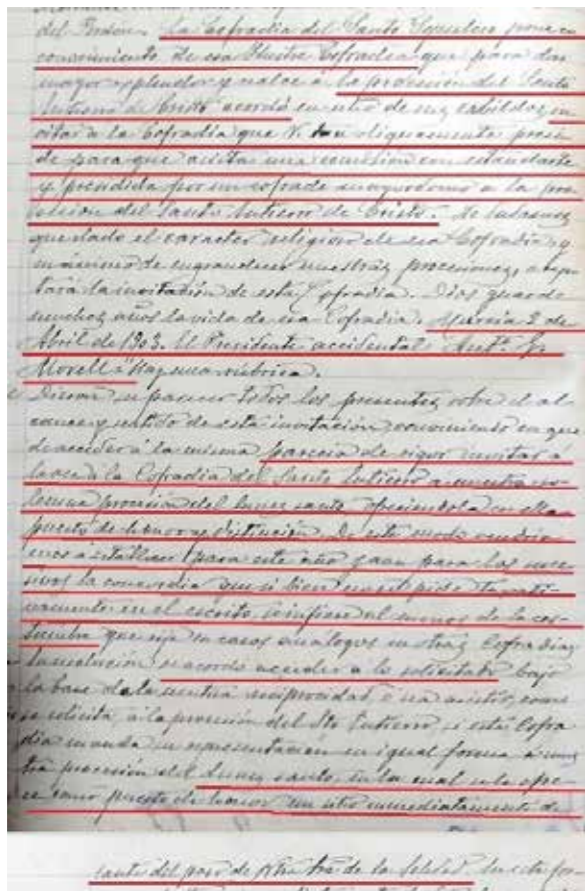 del Perdon. La Cofradia del Santo Sepulcro pone en
conocimiento de esa Ilustre Cofradia que para dar
mayor esplendor y realce á la procesión del Santo
Entierro de Cristo acordó en uno de sus cabildos, in-
vitar á la Cofradia que V. tan dignamente presi-
de para que asista una comisión con estandarte
y presidida por un cofrade mayordomo á la pro-
cesion del Santo Entierro de Cristo.
que dado el caracter religioso de esa Cofradia y
de engrandecer nuestras procesiones, acep-
tará la invitación de esta Cofradia. Dios guarde
muchos años la vida de esa Cofradia. Murcia 2 de
Abril de 1903. El Presidente accidental. Antº G.
Morell. Hay una rúbrica.
su parecer todos los presentes sobre el al-
cance y sentido de esta invitación, en que
de acceder á la misma parecia de rigor invitar á
la Cofradia del Santo Entierro a nuestra so-
lemne procesión del lunes santo ofreciendola en ella
puesto de honor y distinción. De este modo vendria-
mos á establecer para este año y aun para los suce-
sivos la concordia que si bien no se pide taxati-
vamente en el escrito se infiere al menos de la cos-
tumbre que rije en casos analogos en otras Cofradias
se acordó acceder a lo solicitado bajo
la base de la mutua reciprocidad, ó sea asistir, como
se solicita, á la procesión del Sto Entierro, si esta Cofra-
dia manda su representacion en igual forma á nues-
tra procesion del Lunes santo, en la cual se le ofre-
ce como puesto de honor un sitio inmediatamente de-
lante del paso de Ntra Sra de la Soledad. En esta for-